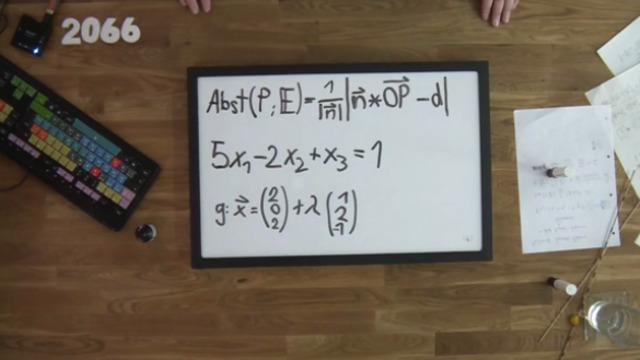 2066
Abst(P; E) = 1/|n⃗| |n⃗ * O⃗P⃗ - d|
5x₁ - 2x₂ + x₃ = 1
g: x⃗ = (2 0 2) + λ (1 2 -1)